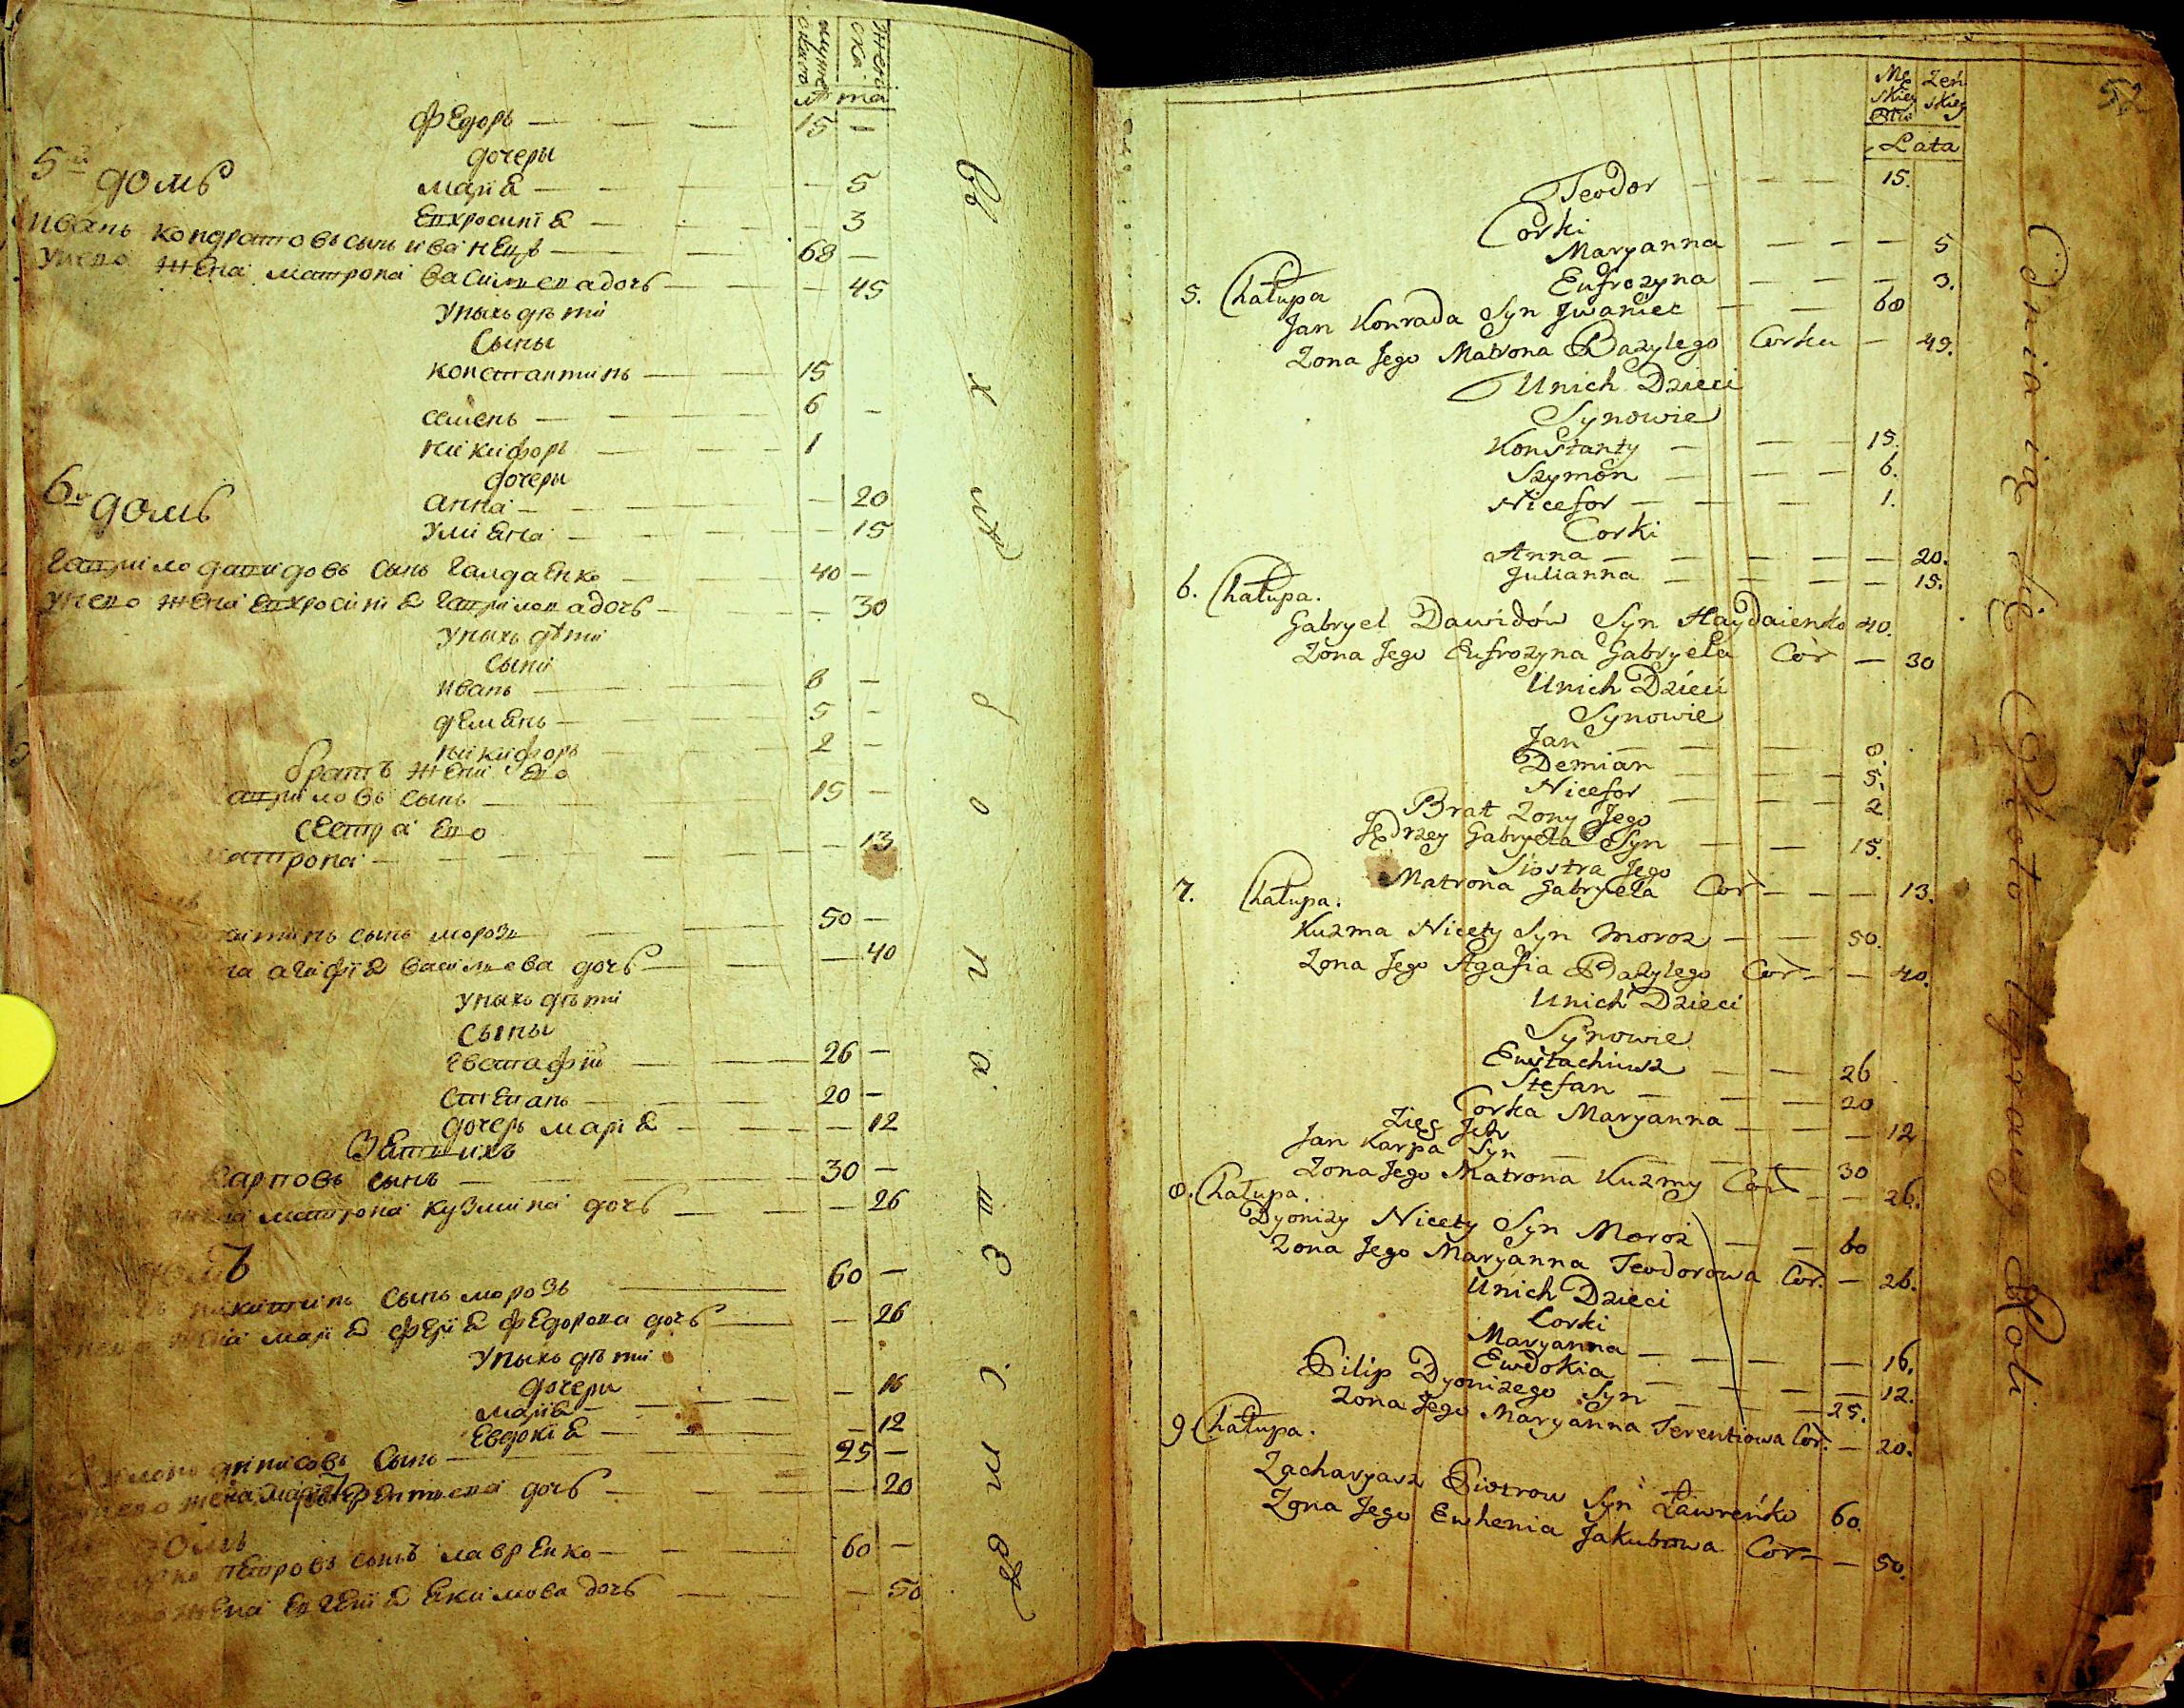 мужеска женска
лѣта
Федоръ — — — 15 —
дочеры
Марїя — — — 5
Евхросинїя — — — 3
5й домъ
Иванъ Кондратовъ сынъ Иванецъ — — 68 —
У него жена Матрона Василиева дочь — — — 45
У нихъ дѣти
Сыны
Константинъ — — 15
Семенъ — — — 6 —
Никифоръ — — 1
дочеры
Анна — — — 20
Улияна — — — 15
6й домъ
Гаврило Давидовъ сынъ Галдаенко — — 40 —
У него жена Евхросинїя Гаврилова дочь — — 30
У нихъ дѣти
Сыни
Иванъ — — — 8 —
Демянъ — — — 5 —
Никифоръ — — 2 —
братъ жени его
Гавриловъ сынъ — — — 15 —
Сестра его
Матрона — — — — 13
сынъ Морозъ — — 50 —
Агафїя Василиева дочь — — — 40
У нихъ дѣти
Сыны
Евстафїй — — 26 —
Степанъ — — 20 —
дочерь Марїя — — — 12
Зять ихъ
Карповъ сынъ — — — 30 —
жена Матрона Кузмина дочь — — — 26
домъ
Никитинъ сынъ Морозъ — 60 —
У него жена Марїя Федорова дочь — — 26
У нихъ дѣти
дочери
Марїя — — — — 16
Евдокїя — — — 12
Денисовъ сынъ — — 25 —
У него жена Марїя Терентиева дочь — — — 20
домъ
Петровъ сынъ Лавренко — — — 60 —
жена Евгенїя Екимова дочь — — — 50
52
Mę skiey Żeń skiey
Płci
Lata
Teodor — — — 15.
Corki
Maryanna — — — 5
Eufrozyna — — — 3.
5. Chałupa
Jan Konrada Syn Jwaniec — — 68
Zona Jego Matrona Bazylego Corka — 49.
Unich Dzieci
Synowie
Konstanty — — — 15.
Szymon — — — 6.
Nicefor — — — 1.
Corki
Anna — — — — — 20.
Julianna — — — — 15.
6. Chałupa.
Gabryel Dawidów Syn Haydaienko 40.
Zona Jego Eufrozyna Gabryela Cór — 30
Unich Dzieci
Synowie
Jan — — — 8.
Demian — — — 5.
Nicefor — — — 2
Brat Zony Jego
Jędrzey Gabryela Syn — — 15.
Siostra Jego
Matrona Gabryela Cor — — — 13.
7. Chałupa.
Kuzma Nicety Syn Moroz — — 50.
Zona Jego Agafia Bazylego Cór — — 40.
Unich Dzieci
Synowie
Ewstachiusz — — 26
Stefan — — — 20
Corka Maryanna — — — 12
Zięć Ich
Jan Karpa Syn — — — — 30
Zona Jego Matrona Kuzmy Cor — — 26.
8. Chałupa.
Dyonizy Nicety Syn Moroz — — 60
Zona Jego Maryanna Teodorowa Cór. — 26.
Unich Dzieci
Corki
Maryanna — — — — 16.
Ewdokia — — — — 12.
Filip Dyonizego Syn — — — 25.
Zona Jego Maryanna Terentiowa Cór. — 20.
9 Chałupa.
Zacharyasz Piotrow Syn Ławreńko 60.
Zona Jego Ewhenia Jakubowa Cor — 50.